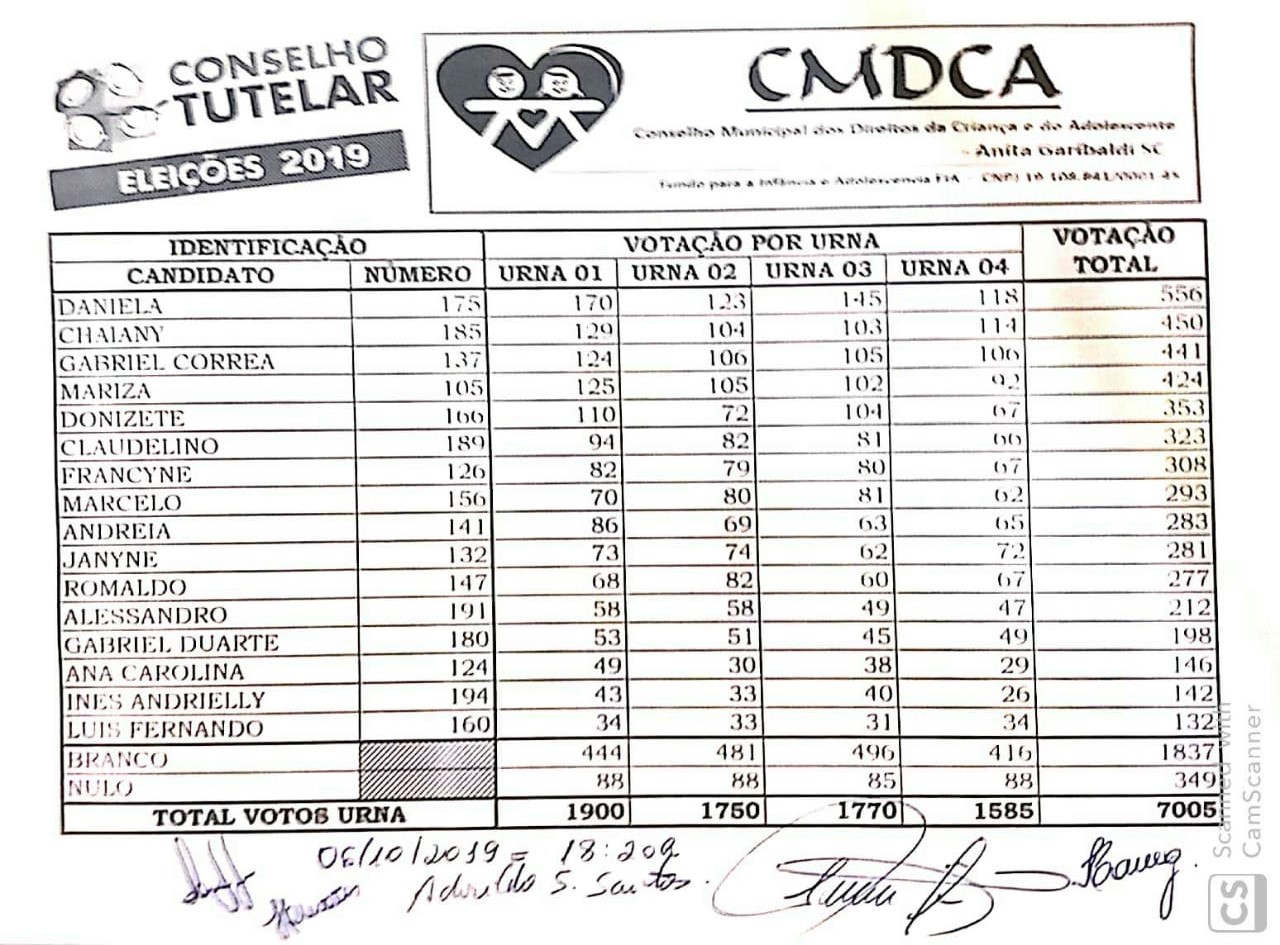 CONSELHO
TUTELAR
ELEIÇÕES 2019
CMDCA
Conselho Municipal dos Direitos da Criança e do Adolescente
- Anita Garibaldi SC
Fundo para a Infância e Adolescencia FIA - CNPJ
IDENTIFICAÇÃO VOTAÇÃO POR URNA VOTAÇÃO TOTAL
CANDIDATO NÚMERO URNA 01 URNA 02 URNA 03 URNA 04
DANIELA 175 170 123 145 118 556
CHAIANY 185 129 104 103 114 450
GABRIEL CORREA 137 124 106 105 106 441
MARIZA 105 125 105 102 92 424
DONIZETE 166 110 72 104 67 353
CLAUDELINO 189 94 82 81 66 323
FRANCYNE 126 82 79 80 67 308
MARCELO 156 70 80 81 62 293
ANDREIA 141 86 69 63 65 283
JANYNE 132 73 74 62 72 281
ROMALDO 147 68 82 60 67 277
ALESSANDRO 191 58 58 49 47 212
GABRIEL DUARTE 180 53 51 45 49 198
ANA CAROLINA 124 49 30 38 29 146
INES ANDRIELLY 194 43 33 40 26 142
LUIS FERNANDO 160 34 33 31 34 132
BRANCO 444 481 496 416 1837
NULO 88 88 85 88 349
TOTAL VOTOS URNA 1900 1750 1770 1585 7005
06/10/2019 = 18:20
S. Santos.
Scanned with
CamScanner
CS